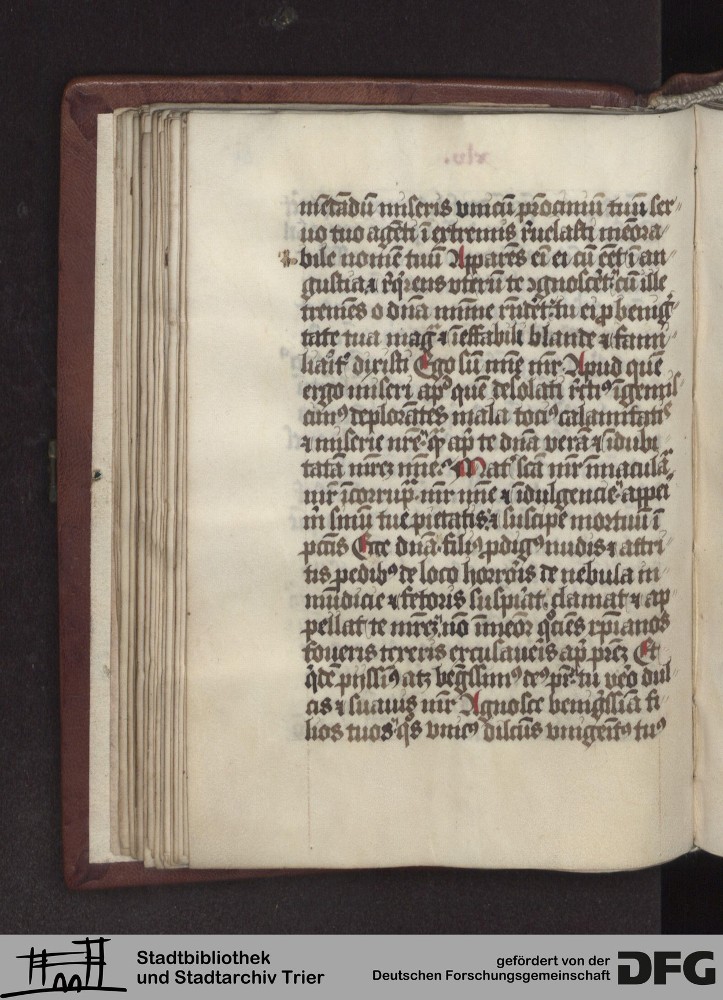 .xlv.
mētādū miseris vnicū prōcīniū tuū ser
uo tuo agēti ī extremis reuelasti mēora
bile nomē tuū Apparēs ei ei cū eēt ī an
gustia ⁊ rq̄rens vterū te ꝯgnosc̄et. cū ille
tremēs o dn̄a mīme rn̄dēt. tu ei ꝓ benig
tate tua mag ⁊ īeffabili blande ⁊ fami
liait dixisti Ego sū mīe mr̄ Apud quē
ergo miseri apꝰ quē desolati īgemis
cimꝰ deplorātes mala tociꝰ calamitatis
⁊ miserie nr̄e ap te dn̄a verā ⁊ īdubi
tatā mīe Mat scā mr̄ īmaculā
mr̄ īcorrup. mr̄ mīe ⁊ īdulgencie appei
sinū tue pietatis ⁊ suscipe mortuū ī
pctīs Ecce dn̄a filiꝰ ꝓdigꝰ nudis ⁊ attri
tis pedibꝰ de loco horroris de nebula in
mūdicie ⁊ fetoris suspirat. clamat ⁊ ap
pellat te mrēꝫ. nō īmeor qcies xp̄ianos
foueris excusaueis ap prēꝫ Et
qdē pussꝰ atꝫ deꝰ pr̄. tu vēo dul
cis ⁊ suauis mr̄ Agnosce benigssīa fi
lios tuos qs vnicꝰ dilcūs vnigeītꝰ tuꝰ
Stadtbibliothek
und Stadtarchiv Trier
gefördert von der
Deutschen Forschungsgemeinschaft
DFG